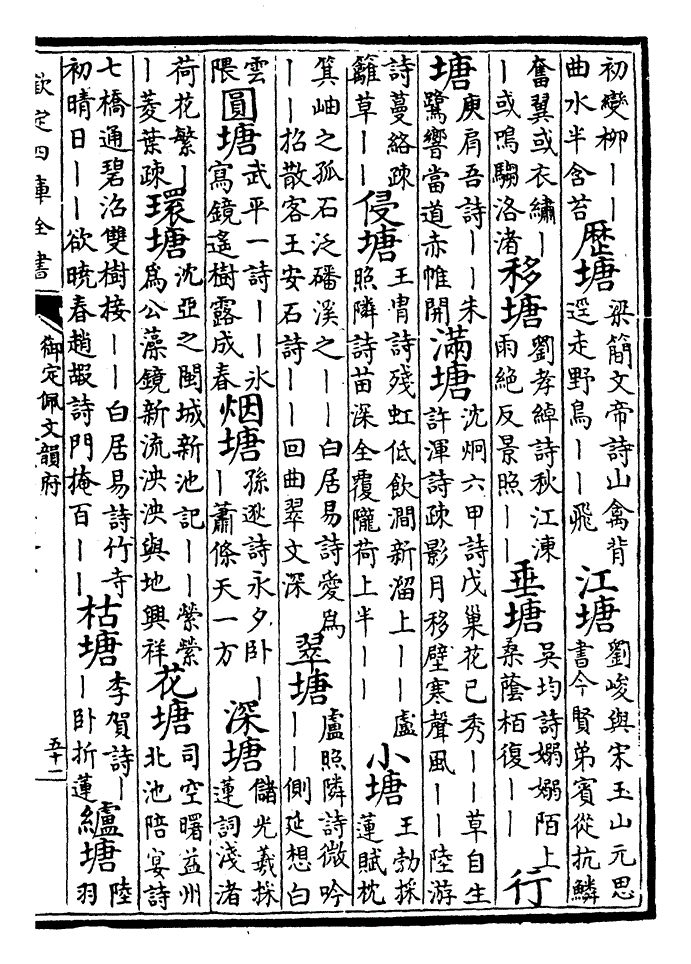 初變柳｜｜曲水半含苔歷塘梁簡文帝詩山禽背逕走野鳥｜｜飛江塘劉峻與宋玉山元思書今賢弟賓從抗鱗
奮翼或衣繡｜｜或鳴騶洛渚移塘劉孝綽詩秋江凍雨絕反景照｜｜垂塘吳均詩嫋嫋陌上桑蔭栢復｜｜行
塘庾肩吾詩｜｜朱鷺響當道赤帷開滿塘沈炯六甲詩戊巢花已秀｜｜草自生許渾詩疎影月移壁寒聲風｜｜陸游
詩蔓絡疎籬草｜｜侵塘王胄詩殘虹低飲澗新溜上｜｜盧照隣詩苗深全覆隴荷上半｜｜小塘王勃採蓮賦枕
箕岫之孤石泛磻溪之｜｜白居易詩愛爲｜｜招散客王安石詩｜｜回曲翠文深翠塘盧照隣詩微吟｜｜側延想白
雲隈圓塘武平一詩｜｜氷寫鏡遙樹露成春烟塘孫逖詩永夕卧｜｜蕭條天一方深塘儲光羲採蓮詞淺渚
荷花繁｜｜菱葉疎環塘沈亞之閩城新池記｜｜縈縈爲公藻鏡新流泱泱與地興祥花塘司空曙益州北池陪宴詩
七橋通碧沼雙樹接｜｜白居易詩竹寺初晴日｜｜欲曉春趙嘏詩門掩百｜｜枯塘李賀詩｜｜卧折蓮纑塘陸羽
欽定四庫全書
御定佩文韻府
五十一